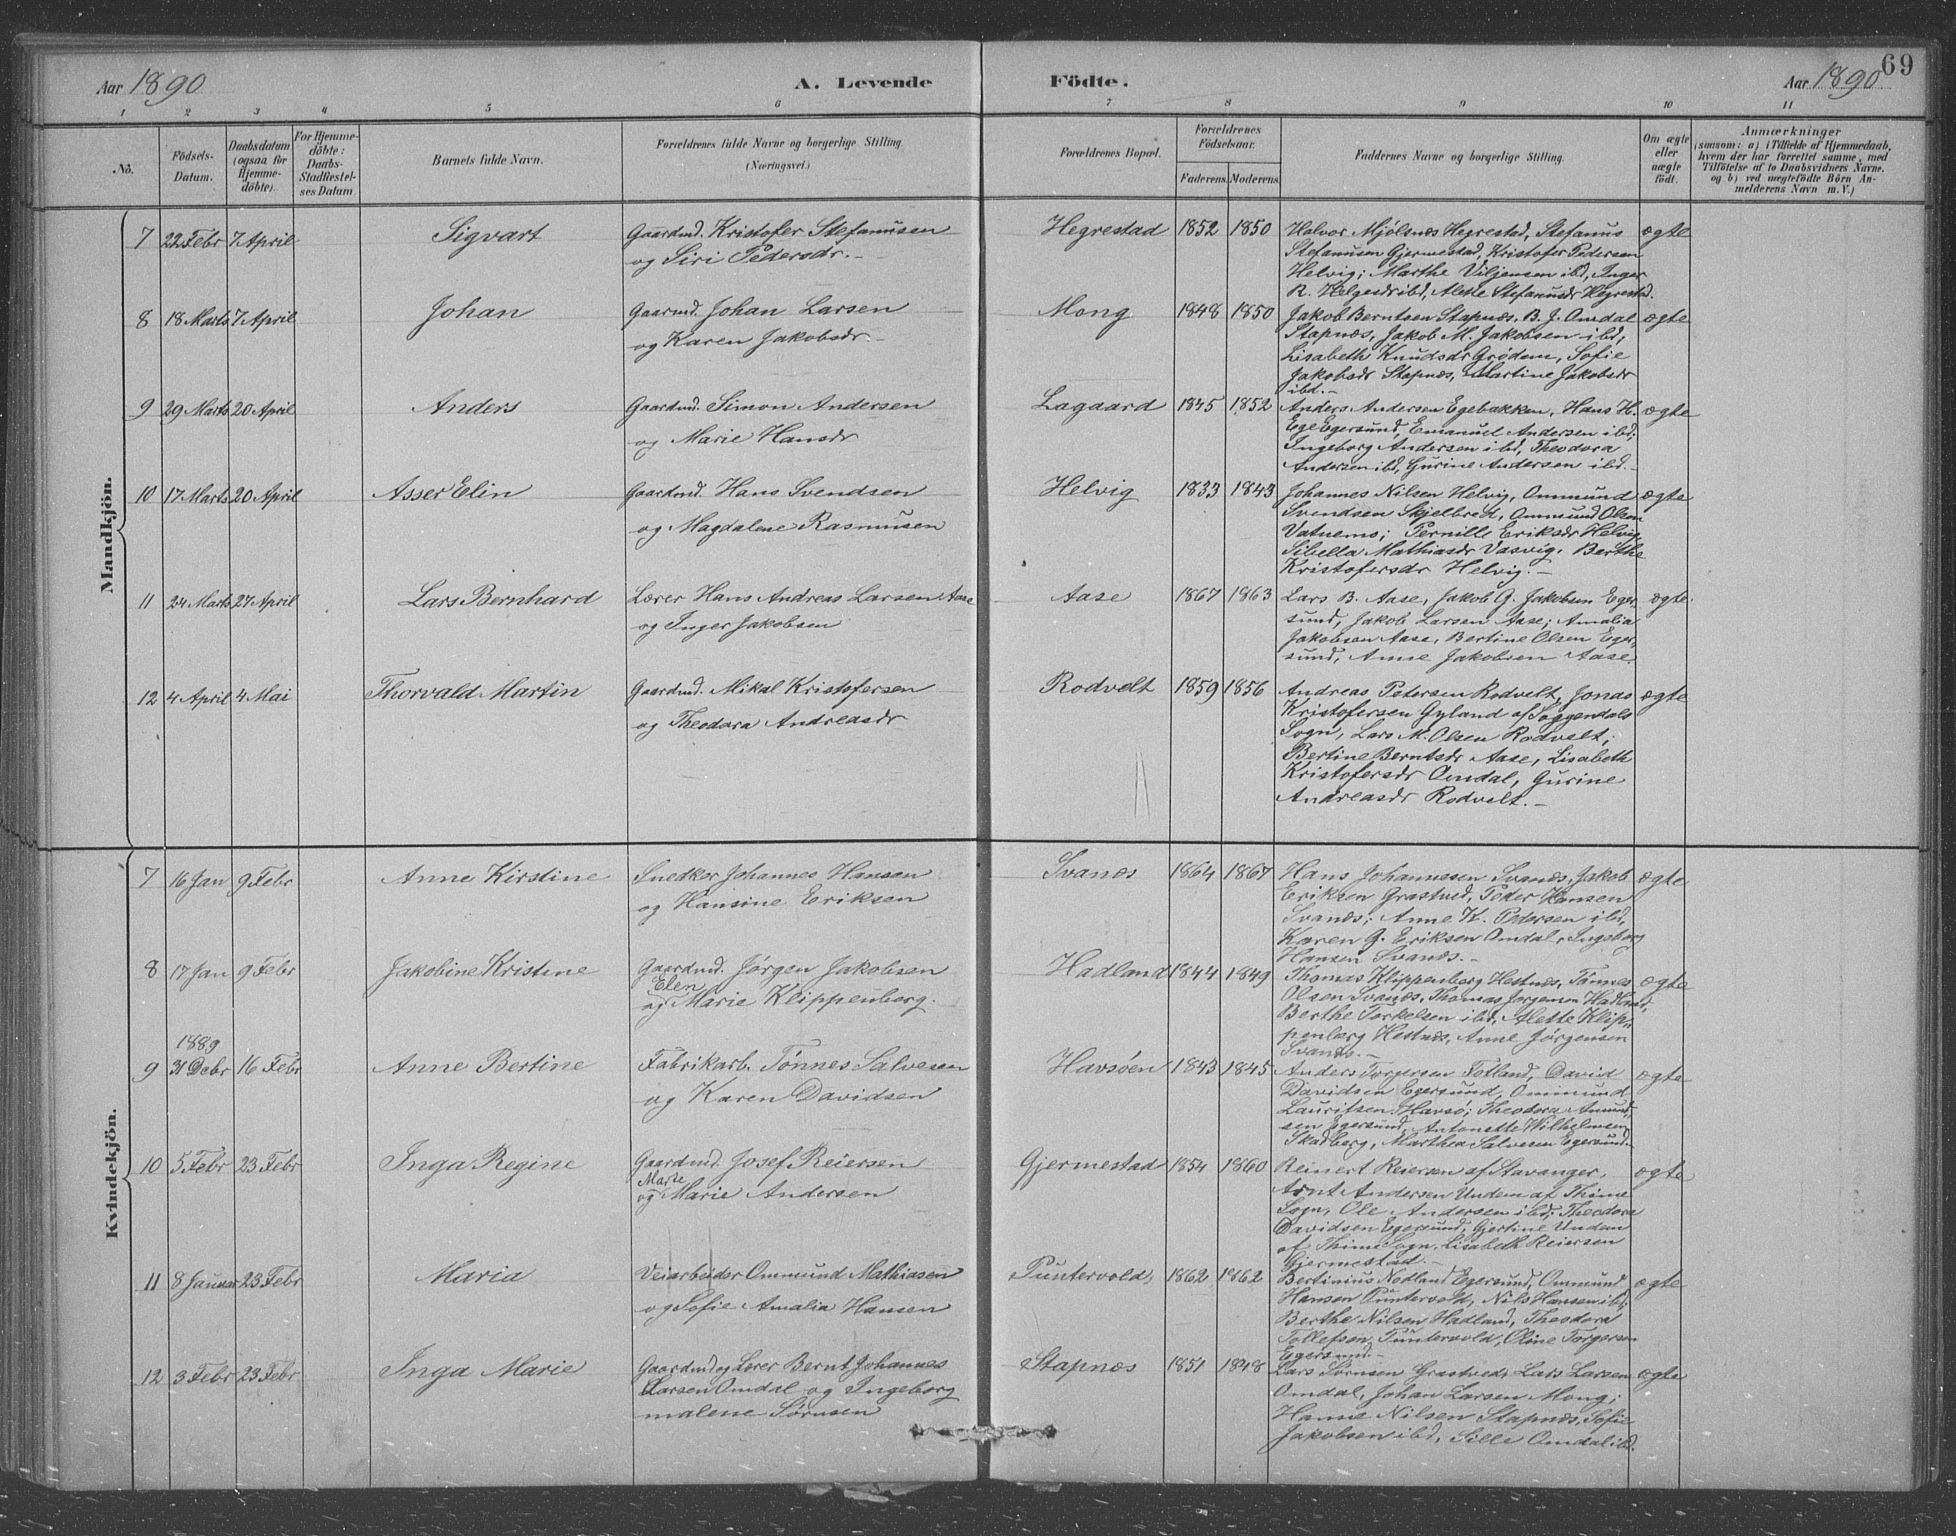 69
Aar 1890
A. Levende Födte.
Aar 1890
1 2 3 4 5 6 7 8 9 10 11
No.
Födsels-Datum.
Daabsdatum (ogsaa for Hjemme-döbte).
For Hjemme-döbte: Daabs-Stadfæstel-ses Datum
Barnets fulde Navn.
Forældrenes fulde Navne og borgerlige Stilling. (Næringsvei.)
Forældrenes Bopæl.
Forældrenes Födselsaar.
Faderens. Moderens.
Faddernes Navne og borgerlige Stilling.
Om ægte eller uægte födt.
Anmærkninger
(saasom: a) i Tilfælde af Hjemmedaab,
hvem der har forrettet samme, med
Tilföielse af to Daabsvidners Navne.
og b) ved uægtefödte Börn An-
melderens Navn m. V.)
Mandkjön.
7 22 Febr 7 April Sigvart Gaardmd. Kristofer Stefanusen Hegrestad 1852 1850 Halvor Mjölsnes Hegrestad, Stefanus ægte
og Siri Pedersdr. Stefanusen Gjermestad, Kristofer Pedersen
Helvig; Marthe Viljensen ibd, Inger
R. Helgesdr ibd, Alette Stefanusdr Hegrestad.
8 18 Marts 7 April Johan Gaardmd. Johan Larsen Mong 1848 1850 Jakob Berntsen Stapnæs, B. J. Omdal ægte
og Karen Jakobsdr. Stapnæs, Jakob M. Jakobsen ibd;
Lisabeth Knudsdr Grödem, Sofie
Jakobsdr Stapnæs, Martine Jakobsdr
ibd.
9 29 Marts 20 April Anders Gaardmd. Simon Andersen Lagaard 1845 1852 Anders Andersen Egebakken, Hans H. ægte
og Marie Hansdr Ege Egersund, Emanuel Andersen ibd;
Ingeborg Andersen ibd, Theodora
Andersen ibd, Gurine Andersen ibd.
10 17 Marts 20 April Asser Elin Gaardmd. Hans Svendsen Helvig 1833 1843 Johannes Nilsen Helvig, Ommund ægte
og Magdalene Rasmusen Svendsen Skjelbred, Ommund Olsen
Vatnemo; Pernille Eriksdr Helvig
Sibella Mathiasdr Vasvig, Berthe
Kristofersdr Helvig.
11 24 Marts 27 April Lars Bernhard Lærer Hans Andreas Larsen Aase Aase 1867 1863 Lars B. Aase, Jakob G. Jakobsen Eger- ægte
og Inger Jakobsen sund, Jakob Larsen Aase; Amalia
Jakobsen Aase, Bertine Olsen Eger-
sund, Anne Jakobsen Aase.
12 4 April 4 Mai Thorvald Martin Gaardmd. Mikal Kristofersen Rodvelt 1859 1856 Andreas Petersen Rodvelt, Jonas ægte
og Theodora Andreasdr Kristofersen Gyland af Soggendals
Sogn, Lars M. Olsen Rodvelt;
Bertine Berntsdr Aase, Lisabeth
Kristofersdr Omdal, Gurine
Andreasdr Rodvelt.
Kvindekjön.
7 16 Jan 9 Febr Anne Kirstine Snedker Johannes Hansen Svanæs 1864 1867 Hans Johannesen Svanæs, Jakob ægte
og Hansine Eriksen Eriksen Grastved, Peder Hansen
Svanæs; Anne K. Pedersen ibd,
Karen G. Eriksen Omdal, Ingeborg
Hansen Svanæs.
8 17 Jan 9 Febr Jakobine Kristine Gaardmd. Jörgen Jakobsen Hadland 1844 1849 Thomas Klippenberg Hestnæs, Tönnes ægte
og Elen Marie Klippenberg. Olsen Svanæs, Thomas Jörgensen Hadland;
Berthe Torkelsen ibd, Alette Klip-
penberg Hestnæs, Anne Jörgensen
Svanæs.
1889
9 31 Debr 16 Febr Anne Bertine Fabrikarb. Tönnes Salvesen Havsöen 1843 1845 Anders Torgersen Fotland, David ægte
og Karen Davidsen Davidsen Egersund, Ommund
Lauritsen Havsö; Theodora Amund-
sen Egersund, Antonette Wilhelmsen
Skadberg, Marthea Salvesen Egersund.
10 5 Febr 23 Febr Inga Regine Gaardmd. Josef Reiersen Gjermestad 1854 1860 Reinert Reiersen af Stavanger, ægte
og Marte Marie Andersen Arnt Andersen Undem af Thime
Sogn, Ole Andersen ibd; Theodora
Davidsen Egersund, Gjertine Undem
af Thime Sogn, Lisabeth Reiersen
Gjermestad.
11 8 Januar 23 Febr Maria Veiarbeider Ommund Mathiasen Puntervold, 1862 1862 Bertinius Nodland Egersund, Ommund ægte
og Sofie Amalia Hansen Hansen Puntervold, Nils Hansen ibd;
Berthe Nilsen Hadland, Theodora
Tollefsen Puntervold, Oline Torgersen
Egersund.
12 3 Febr 23 Febr Inga Marie Gaardmd og Lærer Bernt Johannes Stapnæs 1851 1848 Lars Sörnsen Grastved, Lars Larsen ægte
Larsen Omdal og Ingeborg Omdal, Johan Larsen Mong;
malene Sörnsen Hanne Nilsen Stapnæs, Sofie
Jakobsen ibd, Sille Omdal ibd.